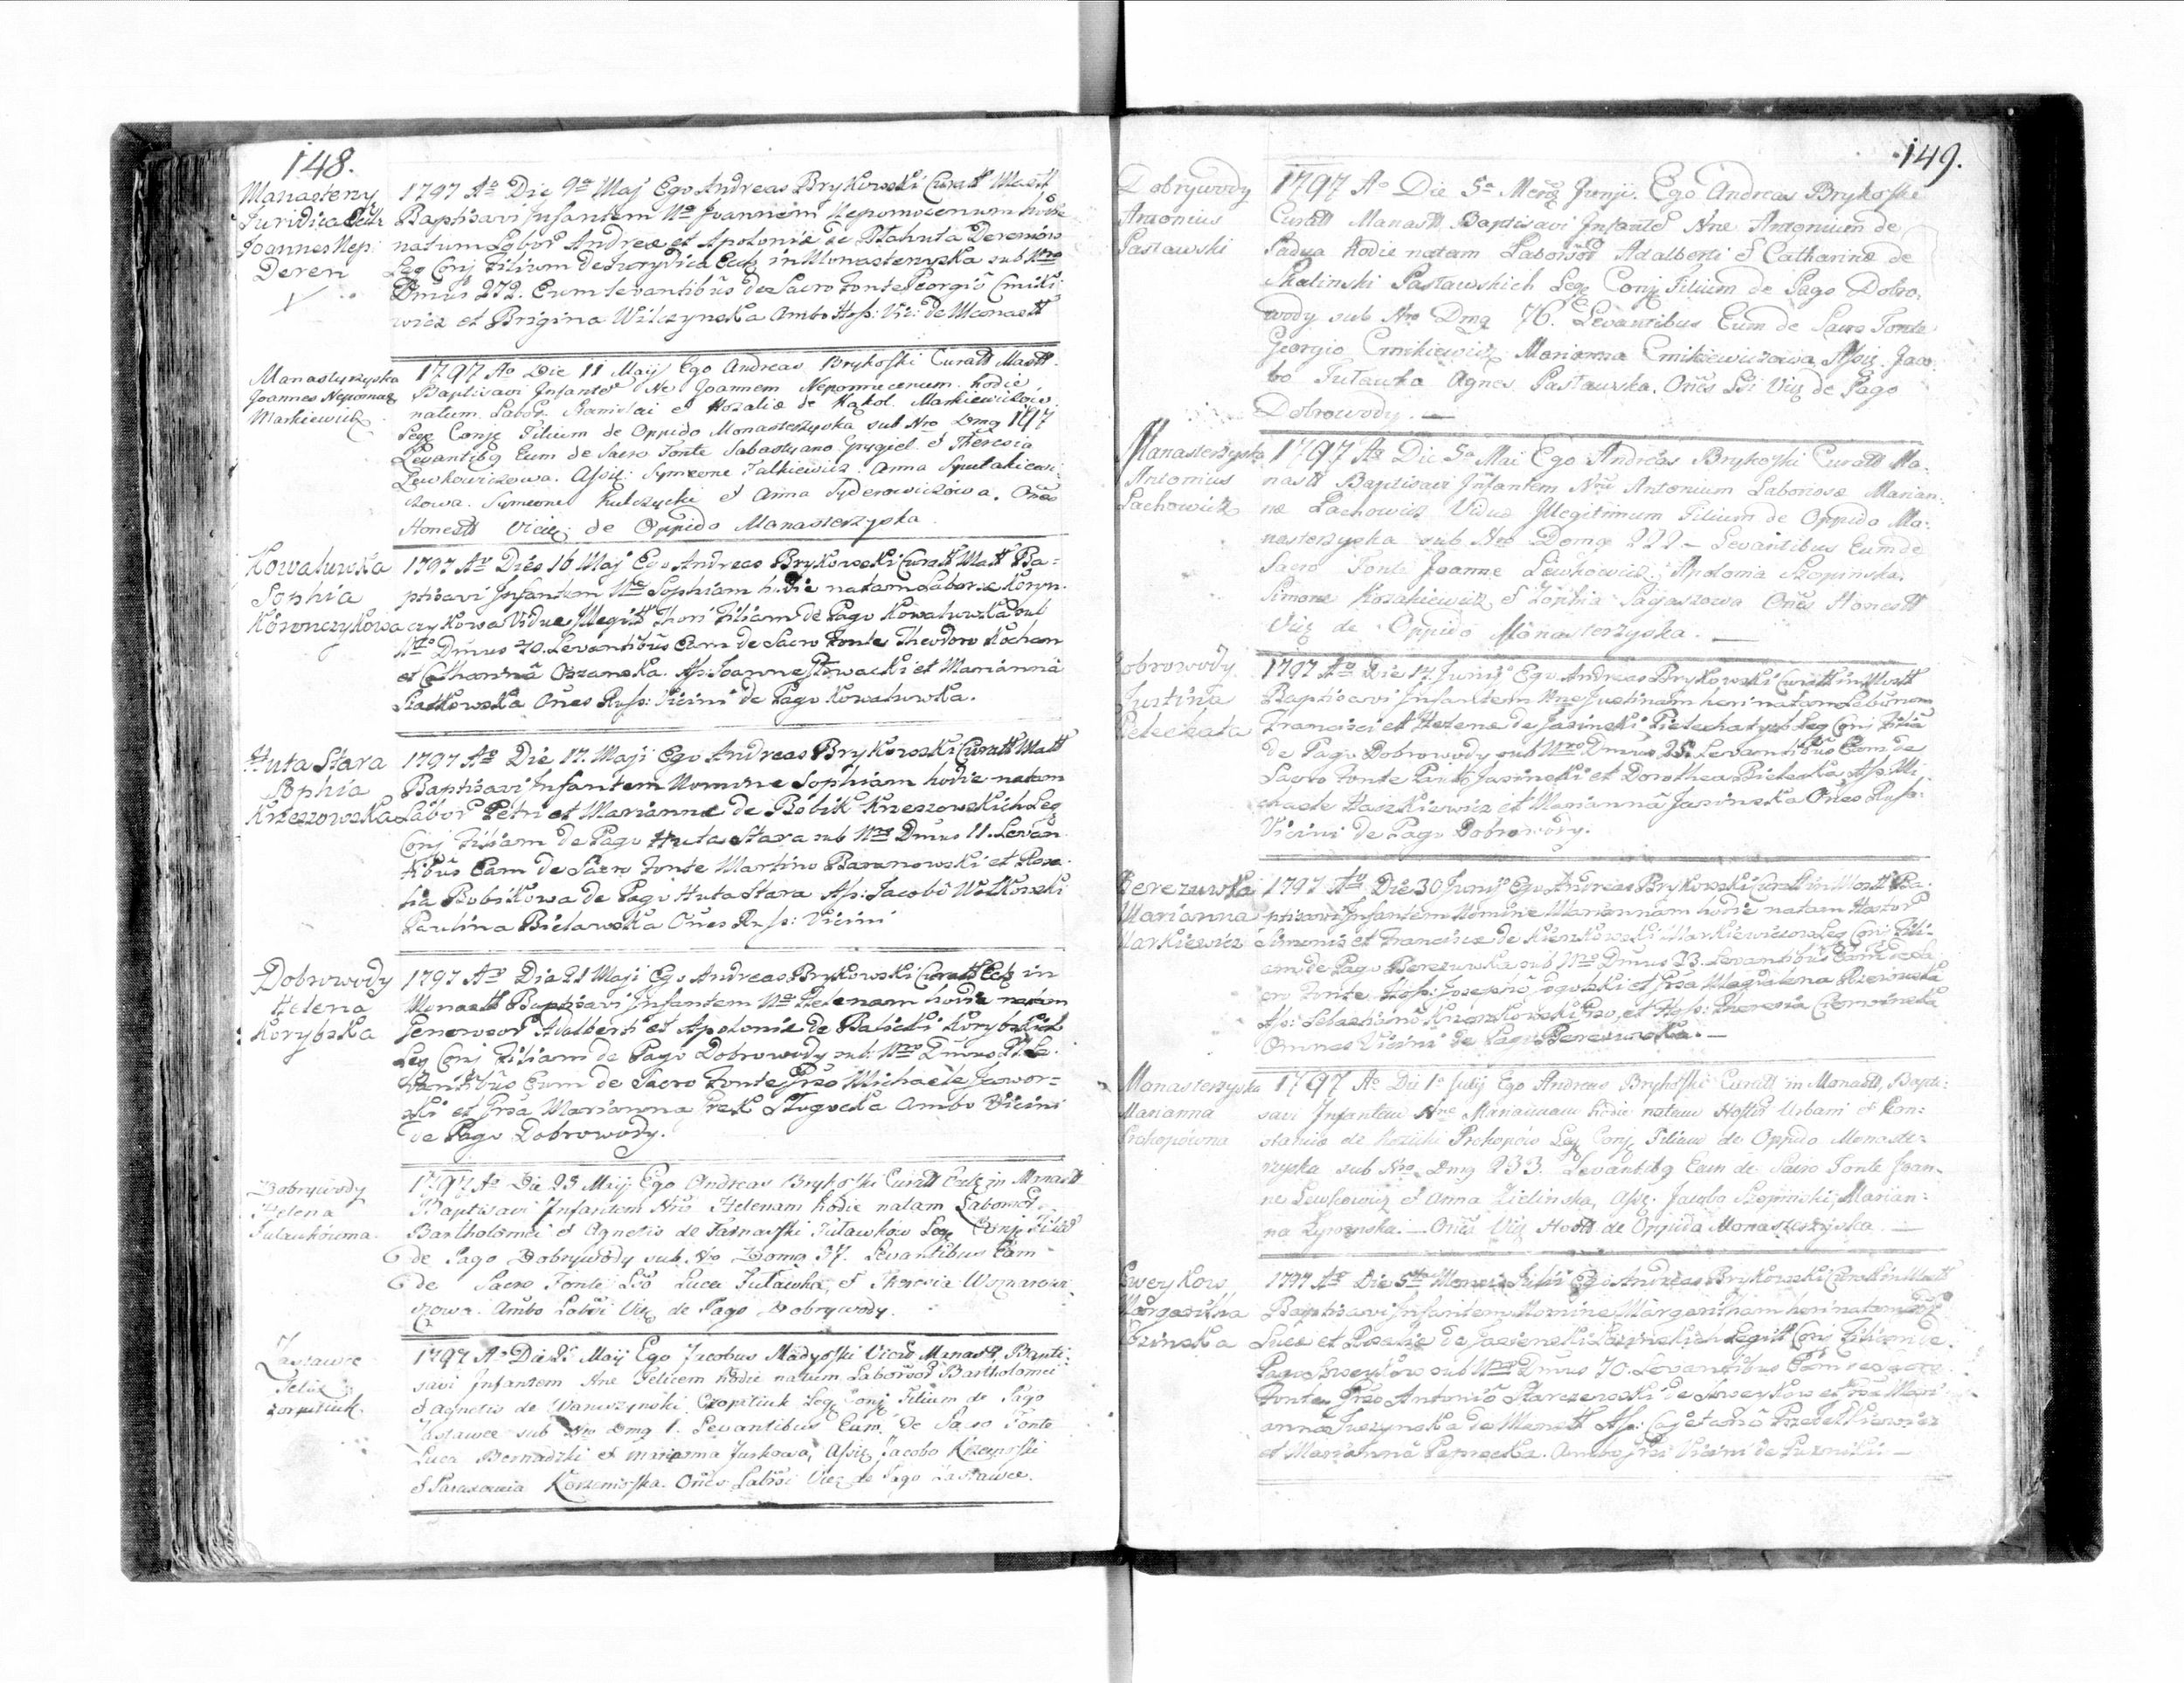 148.
Manastery
Juridica Eccl
Joannes Nep:
Deren
1797 Ao Die 9a Maj Ego Andreas Brykowski Curatt Mastt
Baptisavi Infantem Ne Joannem Nepomocenum hodie
natum Labor Andreæ et Apoloniæ de Ptahuta Dereniow
Leg Conj Filium de Jurydica Eccl in Monasteryska sub Nro
Dmus 272. Eum levantibus de Sacro Fonte Georgio Cmiki
wicz et Brigina Wilczynska Ambo Hosp: Vic: de Monastt
Manasterzyska
Joannes Nepomuc
Markiewicz
1797 Ao Die 11 Maij Ego Andreas Brykosski Curatt Mastt
Baptisavi Infante Ne Joannem Nepomucenum hodie
natum Labor. Stanislai et Rozaliæ de Kąkol Markiewiczow
Legę Conję Filium de Oppido Monasterzyska sub Nro Dmq 147
Levantibq Eum de Sacro Fonte Sabastyano Grygiel et Theresia
Lewkowiczowa. Assię: Symeone Falkiewicz Anna
czowa. Symeone Kulczycki et Anna Fyderowiczowa. Ones
Honestt Vicię de Oppido Manasterzyska
Kowaluwka
Sophia
Koronczykowa
1797 Ao Dies 16 Maj Ego Andreas Brykowski Curatt Mastt Ba=
ptisavi Infantem Ne Sophiam hodie natam Laboræ Koron=
czykowa Viduæ Illegitt Thori Filiam de Pago Kowaluwka sub
Nro Dmus 70. Levantibus Eam de Sacro Fonte Theodoro Kochan
et Catharina Oszanska. Ass: Joanne Słowacki et Marianna
Siatkowska Ones Rusp: Vicini de Pago Kowaluwka.
Huta Stara
Sophia
Krzeszowska
1797 Ao Die 17. Maji Ego Andreas Brykowski Curatt Mastt
Baptisavi Infantem Nomine Sophiam hodie natam
Labor Petri et Mariannæ de Bobik Krzeszowskich Leg
Conj Filiam de Pago Huta Stara sub Nro Dmus 11. Levan
tibus Eam de Sacro Fonte Martino Baranowski et Roza
lia Bobikowa de Pago Huta Stara Ass: Jacobo Wolkowski
Paulina Bielawska Ones Rusp: Vicini
Dobrowody
Helena
Korybska
1797 Ao Dia 21 Maji Ego Andreas Brykowski Curatt Eclę in
Monastt Baptisavi Infantem Ne Helenam hodie natam
Generosor Adalberti et Apoloniæ de Balicki Korybskich
Leg Conj Filiam de Pago Dobrowody sub Nro Dmus 21. Le
vantibus Eum de Sacro Fonte Gnso Michaele Jawor=
ski et Gnsa Marianna Grek Slugocka Ambo Vicini
de Pago Dobrowody.
Dobrywody
Helena
Tulawkówna
1797 Ao Die 23 Maij Ego Andreas Brykosski Curatt Eccle in Monastt
Baptisavi Infantem Nne Helenam hodie natam Laborior
Bartholomei et Agnetis de Tarnawski Tulawków Legę Conję Filia
de Pago Dobrywody sub Nro Domq 37. Levantibus Eam
de Sacro Fonte Lso Luca Tulawka, et Theresia
czowa. Ambo Labsi Vię de Pago Dobrywody.
Zastawce
Felix
1797 Ao Die 25 Maij Ego Jacobus Madyosski Vicar Manastt Bapti=
savi Infantem Nne Felicem hodie natum Laborior Bartholomei
et Agnetis de Wanczynski Czopitiuk Legę Conję Filium de Pago
Zastawce sub Nro Dmq 1. Levantibus Eum de Sacro Fonte
Luca Bernadzki et Marianna Jurkowa, Assię Jacobo
et Paraxewia Krzemieska. Ones Labsi Vię de Pago Zastawce.
149.
Dobrywody
Antonius
Pasławski
1797 Ao Die 5a Mensę Junji. Ego Andreas Brykosski
Curatt Manastt Baptisavi Infante Nne Antonium de
Padua hodie natum Laborior Adalberti et Catharinæ de
Skalinski Pasławskich Legę Conję Filium de Pago Dobro
wody sub Nro Dmq 76. Levantibus Eum de Sacro Fonte
Georgio Cmikiewicz Marianna Cmikiewiczowa Assię. Jaco
bo Tuławka Agnes Pasławska. Ones Lsi Vię de Pago
Dobrowody.
Manasterzyska
Antonius
Lachowicz
1797 Ao Die 5a Mai Ego Andreas Brykosski Curatt Ma.
nastt Baptisavi Infantem Nne Antonium Laboriosæ Marian
næ Lachowicz Viduæ Illegitimum Filium de Oppido Ma=
nasterzyska sub Nro Domq 222 — Levantibus Eum de
Sacro Fonte Joanne Lewkowicz, Apolonia Szopinska,
Simone Kozakiewicz et Zophia Sagaszowa Ones Honestt
Vię de Oppido Monasterzyska.
Dobrowody
Justina
Pelechata
1797 Ao Die 17. Junij Ego Andreas Brykowski Curatt in Mostt
Baptisavi Infantem Nne Justinam heri natam Laboriosor
Francisci et Helenæ de Jasinski Pielechatych Leg Conj Filia
de Pago Dobrowody sub Nro Dmus 25. Levantibus Eam de
Sacro Fonte Jasinski et Dorothea Bielecka Ass: Mi
chaele Haszkiewicz et Marianna Jasinska Ones Rusp:
Vicini de Pago Dobrowody.
Berezuwka
Marianna
Markiewicz
1797 Ao Die 30 Junij Ego Andreas Brykowski Curatt in Mostt Ba=
ptisavi Infantem Nomine Mariannam hodie natam
Simonis et Franciscæ de Kierzkowski Markiewiczow Leg Conj Fili=
am de Pago Berezuwka sub Nro Dmus 23. Levantibus Eam de Sa
cro Fonte Hosp: Josepho et Gnsa Magdalena
Ass: Sebastiano et Hosp: Theresia
Omnes Vicini de Pago Berezuwka.
Monasterzyska
Marianna
Prokopówna
1797 Ao Die 1a Julij Ego Andreas Brykosski Curatt in Monastt, Bapti=
savi Infantem Nne Mariannam hodie natam Hospto Urbani et Con=
stanciæ de Kozicki Prokopów Legę Conję Filiam de Oppido Monaste=
rzyska sub Nro Dmq 233. Levantibq Eam de Sacro Fonte Joan=
ne Lewkowicz et Anna Zielinska, Assę. Jacobo Szopinski, Marian=
na Ones Vię Hostt de Oppido Monasterzyska
Margaritha
1797 Ao Die 5ta Mensis Julii Ego Andreas Brykowski Curatt in Mostt
Baptisavi Infantem Nomine Margaritham heri natam
Lucæ et Rosaliæ de Legitt Conj Filiam de
Pago sub Nro Dmus 70. Levantibus Eam de Sacro
Fonte Gnso Antonio Starczewski de et Gnsa Mari
anna de Monastt Ass: Cajetano
et Marianna Paprocka. Ambo Gnsi Vicini de